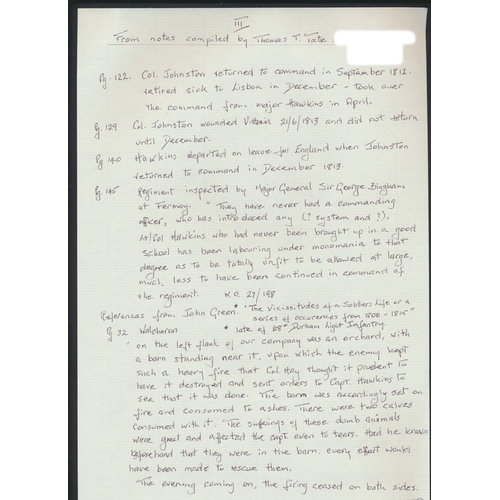 III
From notes compiled by Thomas T. Tate
Pg. 122. Col. Johnston returned to command in September 1812.
retired sick to Lisbon in December - took over
the command from Major Hawkins in April.
Pg. 129 Col. Johnston wounded Vittoria 21/6/1813 and did not return
until December.
Pg. 140 Hawkins departed on leave for England when Johnston
returned to command in December 1813.
Pg. 145 Regiment inspected by Major General Sir George Bingham
at Fermoy. "They have never had a commanding
officer, who has introduced any (? system and ?).
Lt/Col Hawkins who had never been brought up in a good
school has been labouring under monomania to that
degree as to be totally unfit to be allowed at large,
much less to have been continued in command of
the regiment W.O. 27/198
References from John Green* "The Vicissitudes of a Soldiers Life or a
series of occurrences from 1806 - 1815"
Pg 32 Walcheren * late of 68th Durham Light Infantry.
"on the left flank of our company was an orchard, with
a barn standing near it, upon which the enemy kept
such a heavy fire that Col. Hay thought it prudent to
have it destroyed and sent orders to Capt. Hawkins to
see that it was done. The barn was accordingly set on
fire and consumed to ashes. There were two calves
consumed with it. The sufferings of these dumb animals
were great and affected the capt even to tears. Had he known
beforehand that they were in the barn, every effort would
have been made to rescue them.
The evening coming on, the firing ceased on both sides.